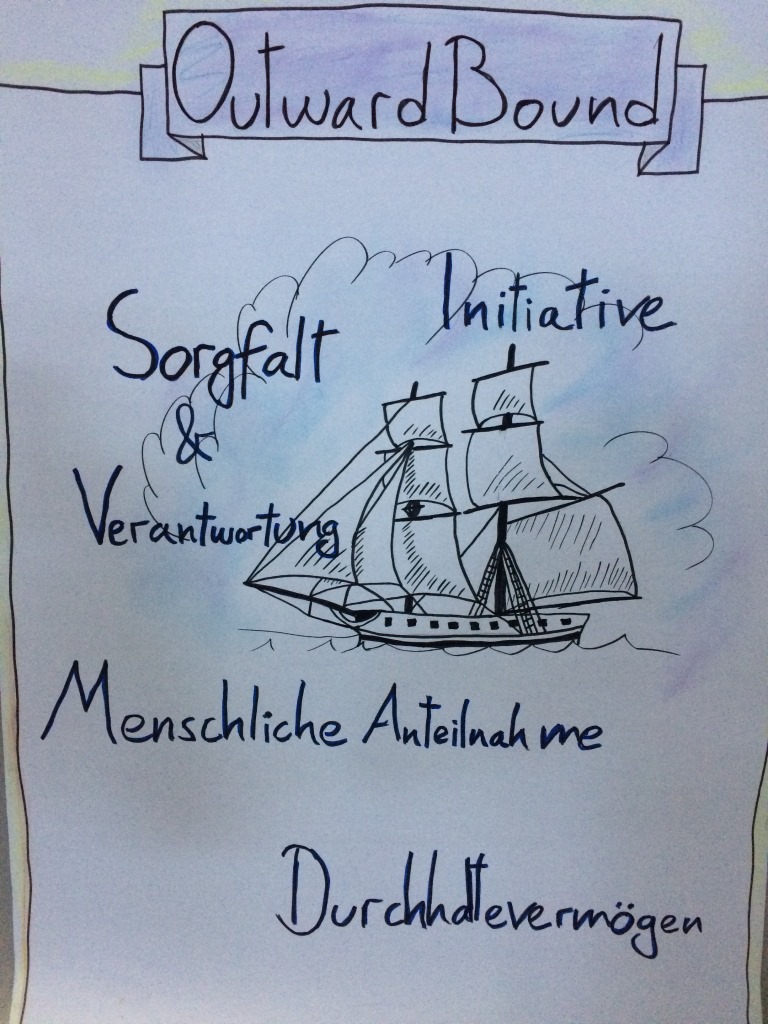 Outward Bound
Initiative
Sorgfalt
&
Verantwortung
Menschliche Anteilnahme
Durchhaltevermögen